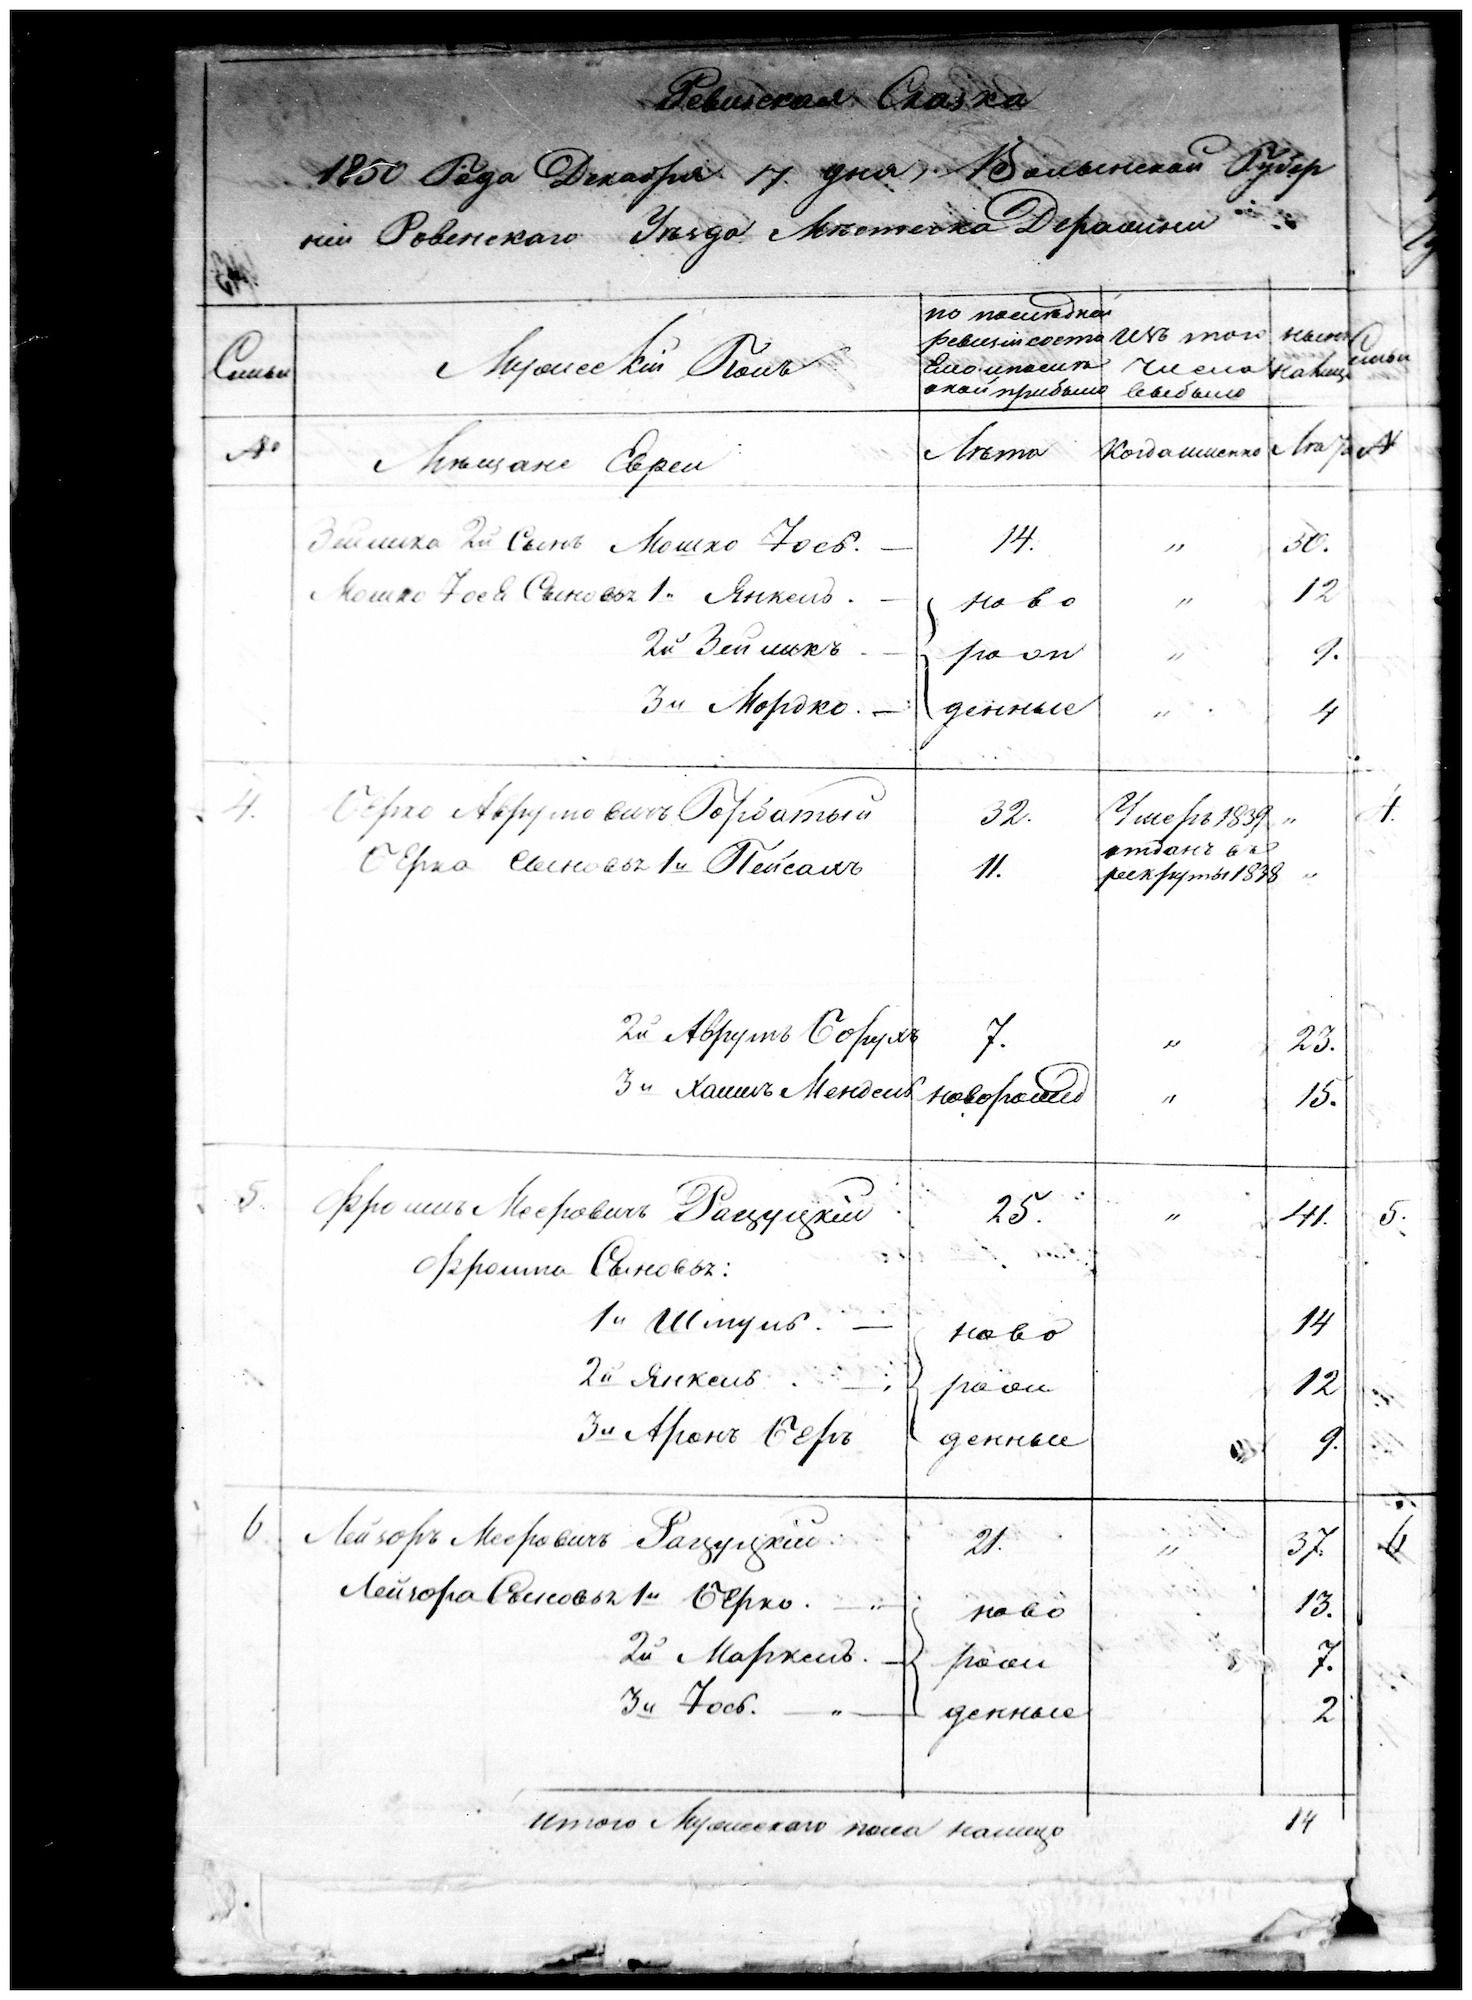 Ревизская Сказка
1850 Года Декабря 17 дня, Волынской Губер
нии Ровенскаго Уѣзда Мѣстечка Деражни
Семьи
Мужескій Полъ
по последней
ревизіи состо
яло и после
оной прибыло
Изъ того
числа
выбыло
ныне
на лицо
Семьи
№ Мѣщане Евреи Лѣта Когда именно Лѣта №
Зейлика 2й Сынъ Мошко Іось. — 14. " 30.
Мошко Іося Сыновья 1й Янкель. — ново " 12
2й Зейликъ. — рож " 9.
3й Мордко. — денные " 4
4. Берко Аврумовичъ Горбатый 32. Умеръ 1839 " 4.
Берка Сыновья 1й Пейсахъ 11. отданъ въ рекруты 1838 "
2й Аврумъ Борухъ 7. " 23.
3й Хаимъ Мендель новорожд " 15.
5. Фроимъ Мееровичъ Рацуцкій 25. " 41. 5.
Фроима Сыновья:
1й Шмуль. — ново 14
2й Янкель. — рож 12
3й Аронъ Беръ денные 9.
6 Лейзоръ Мееровичъ Рацуцкій 21. " 37. 6
Лейзора Сыновья 1й Берко. — ново 13.
2й Маркель. — рож 7.
3й Іось. — " — денные 2
Итого Мужескаго пола налицо 14